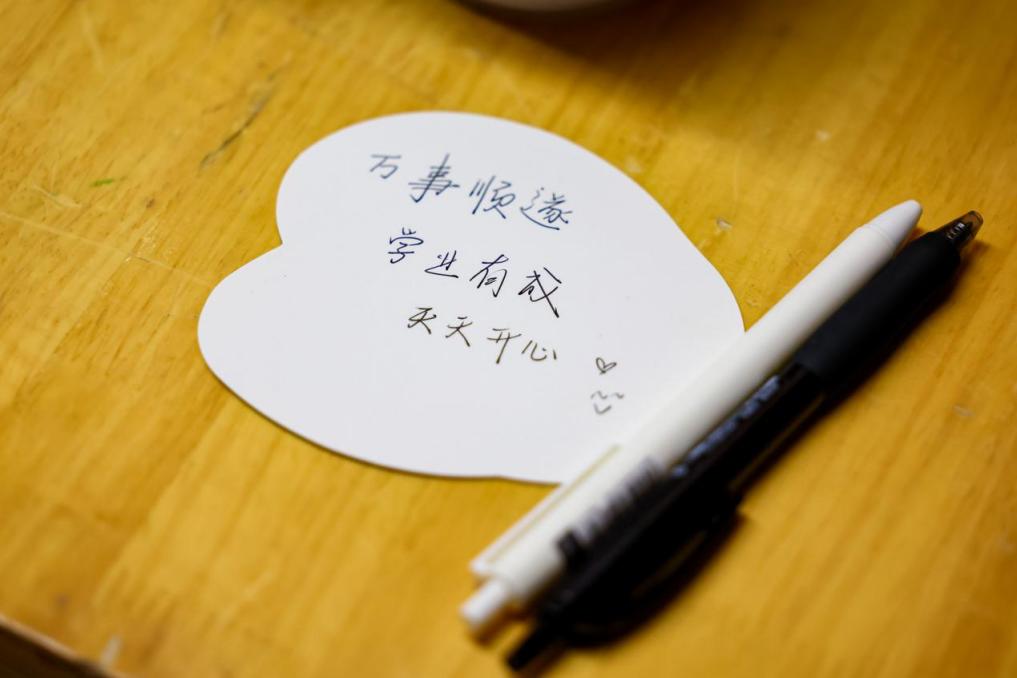 万事顺遂
学业有成
天天开心